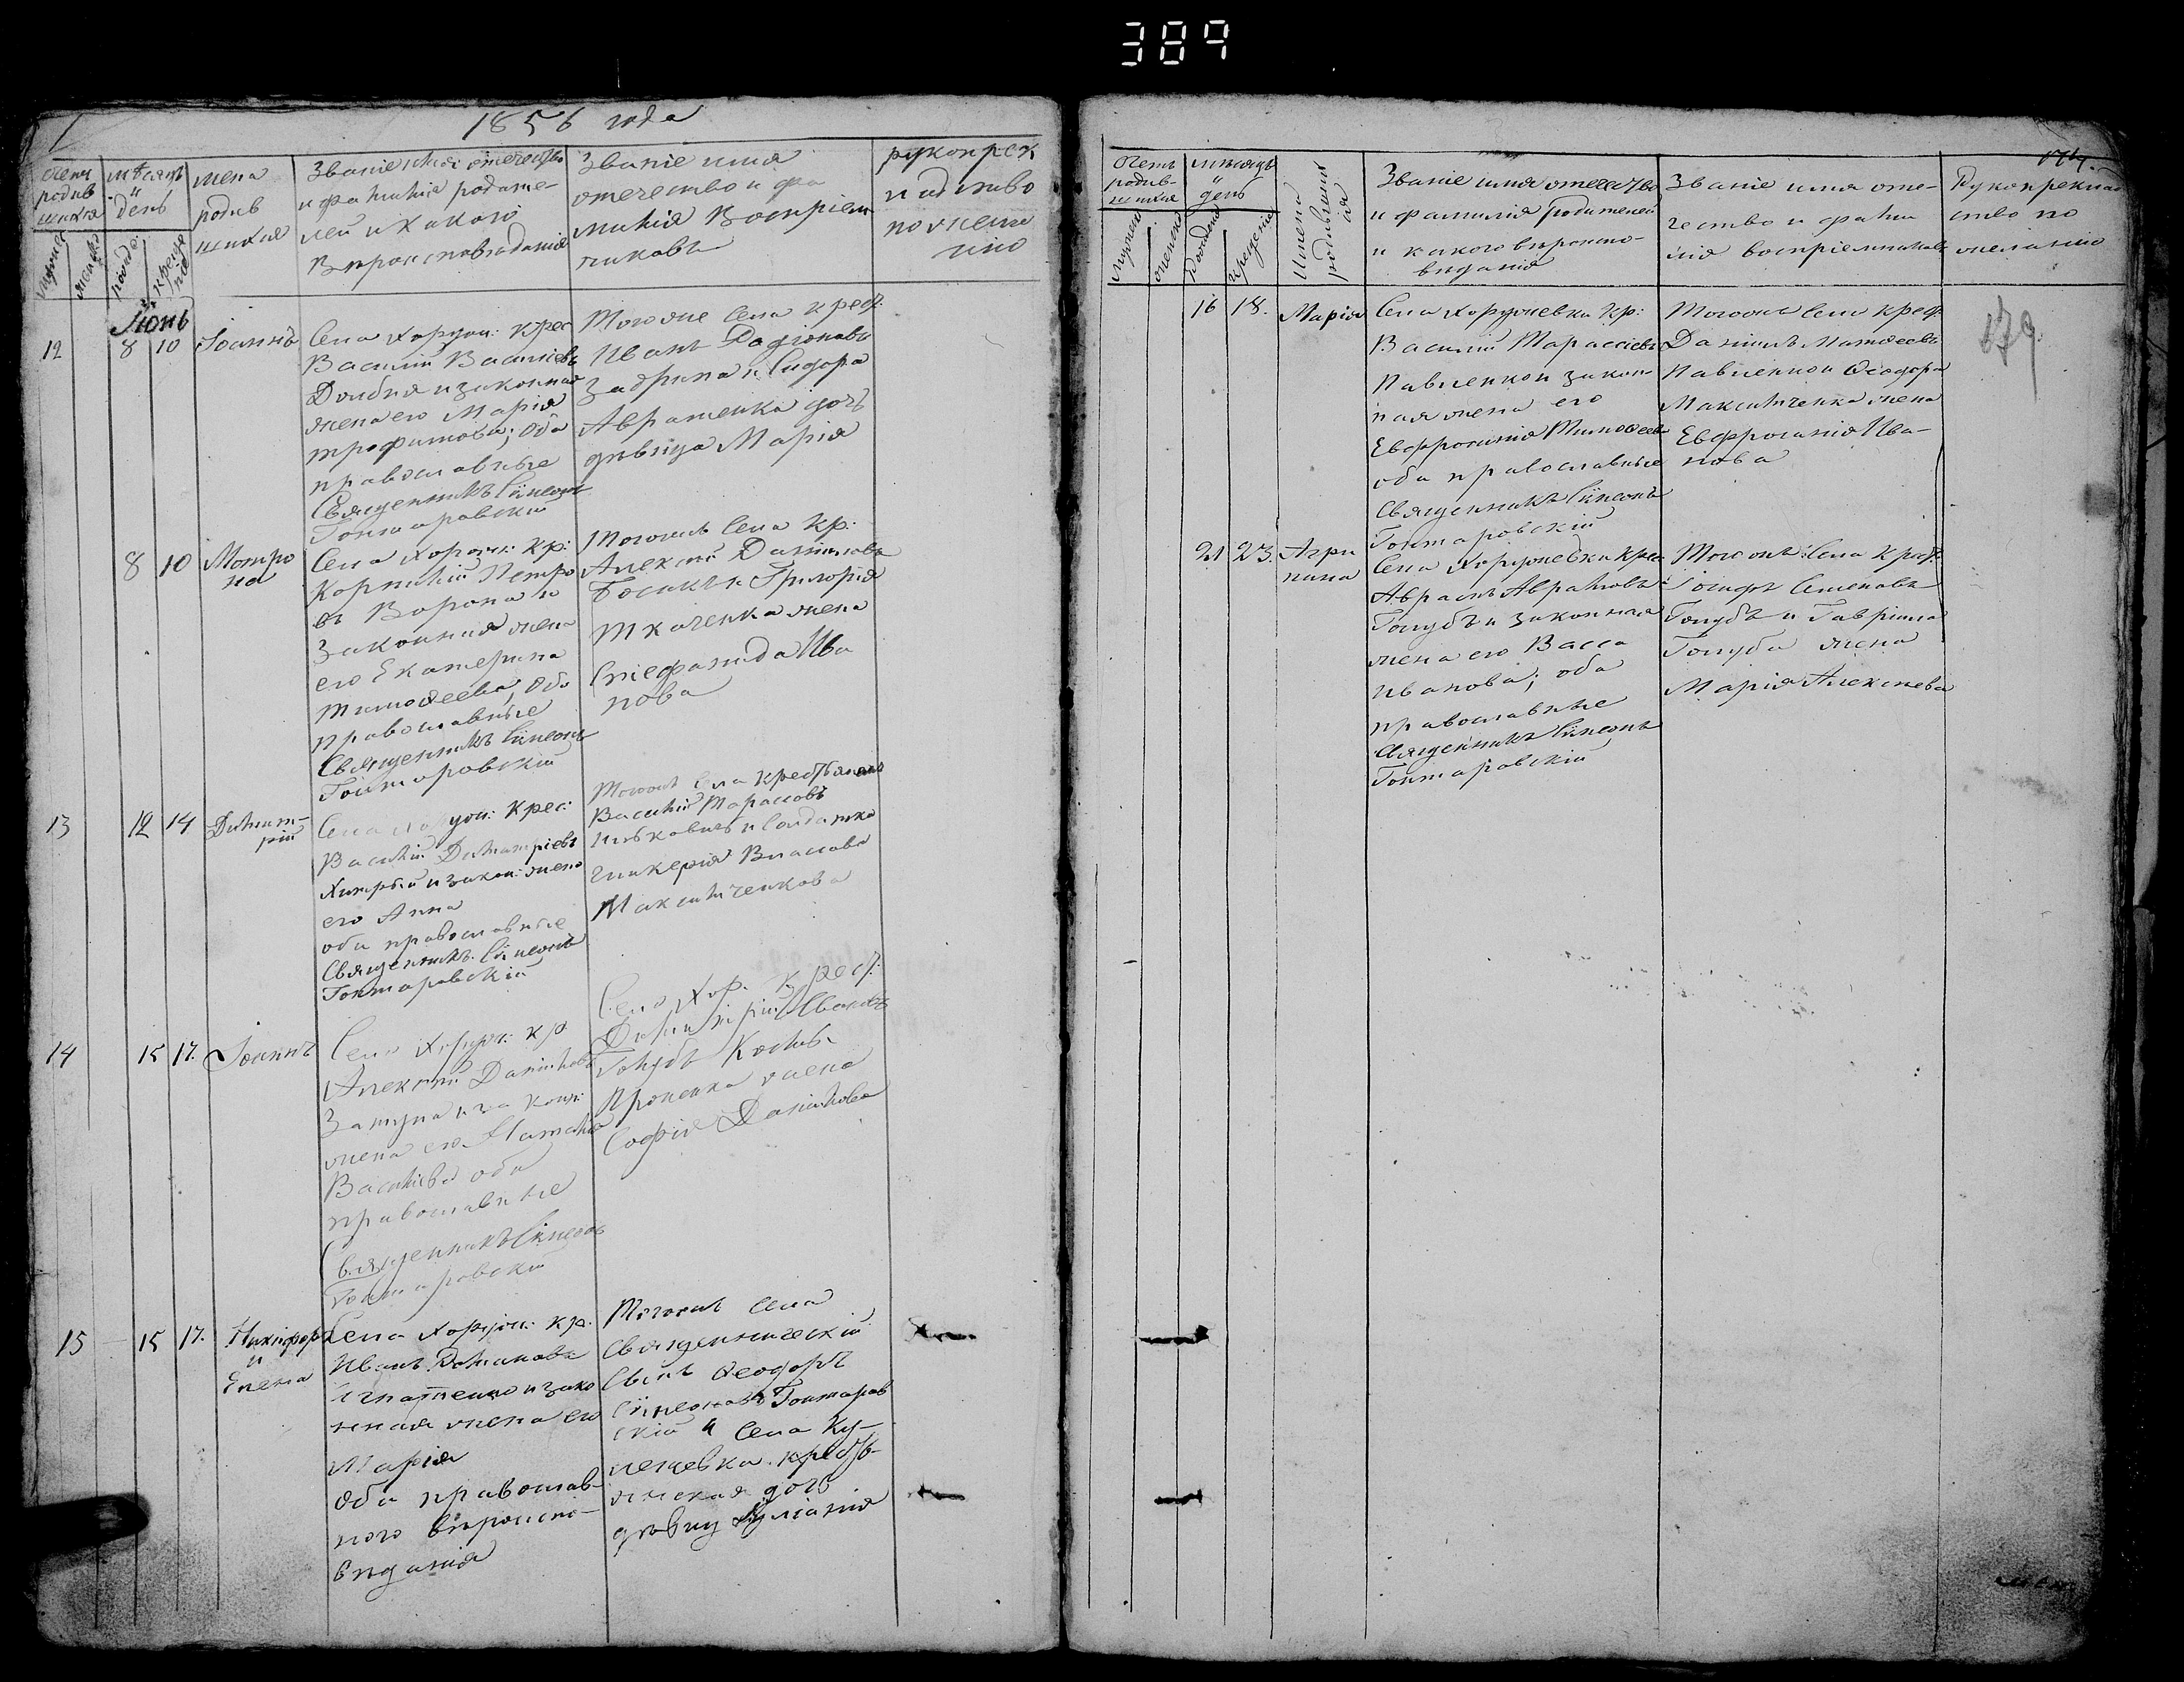 389
1856 года
счетъ родив шихся
мѣсяцъ и день
имена родив шихся
Званіе имя отечество
и фамилія родите-
лей и какого
Вѣроисповѣданія
Званіе имя
отечество и фа
милія Воспріем
никовъ
рукоприк
ладство
по желa
нію
мужес
женск
рожд:
креще
ніе
Іюнь
12 8 10 Іоаннъ
Села Хоруж: Крес
Василій Василіевъ
Довбня и законная
жена его Марія
трофимова; Оба
православные
Священникъ Сѵмеонъ
Гонтаровскій
Тогоже Села крест:
Иванъ Родіоновъ
Задрипа и Сидора
Авраменка дочь
дѣвица Марія
8 10 Мотро
на
Села Хоруж: Кр:
Корнилій Петро
въ Ворона и
Законная жена
его Екатерина
Тимоѳеева, Оба
православные
Священникъ Сѵмеонъ
Гонтаровскій
Тогожъ Села Кр:
Алексѣй Даниловъ
Босикъ и Григорія
Ткаченка жена
Стефанида Ива
нова
13 12 14 Димит-
рій
Села Хоруж: Крес:
Василій Димитріевъ
Хитрый и закон: жена
его Анна
оба православные
Священникъ Сѵмеонъ
Гонтаровскій
Тогожъ Села крестьянинъ
Василій Тарасовъ
и Солдатка
гликерія Власова
Максимченкова
14 15 17. Іоаннъ
Села Хоруж: кр
Алексѣй Даниловъ
Затула и за кон:
жена его Наталія
Васильева оба
православные
Священникъ Сѵмеонъ
Гонтаровскій
Села Хор. крест:
Димитрій Ивановъ
Голубъ
Проненка жена
Софія Данилова
15 15 17. Никифоръ
и
Елена
Села Хоруж: кр:
Иванъ Романовъ
Игнатенко и зако
нная жена его
Марія
Оба православ-
ного вѣроиспо-
вѣданія
Тогожъ Села
Священническій
Сынъ Ѳеодоръ
Сѵмеоновъ Гонтаров
скій и Села Ку-
лешевка. кресть-
янская дочь
дѣвица Іуліанія
счетъ родив-шихся
мѣсяцъ и день
Имена родившихся
Званіе имя отечество
и фамилія родителей
и какого вѣроиспо-
вѣданія
Званіе имя оте-
чество и фами
лія воспріемниковъ
Рукоприклад
ство по
желанію
мужеск
женск
рожденія
крещенія
179.
16 18. Марія
Села Хоружевки Кр:
Василій Тарасіевъ
Павленко и закон-
ная жена его
Евфросинія Тимоѳеева
оба православные
Священникъ Сѵмеонъ
Гонтаровскій
Тогожъ Села крест:
Даниилъ Матвеевъ
Павленко и Ѳеодора
Максимченка жена
Евфросинія Ива-
нова
21 23. Агри
пина
Села Хоружевки крес
Аврамъ Аврамовъ
Голубъ и законная
жена его Васса
Иванова; оба
православные
Священникъ Сѵмеонъ
Гонтаровскій
Тогожъ Села крест:
Іосифъ Семеновъ
Голубъ и Гавріила
Голуба жена
Марія Алексеева